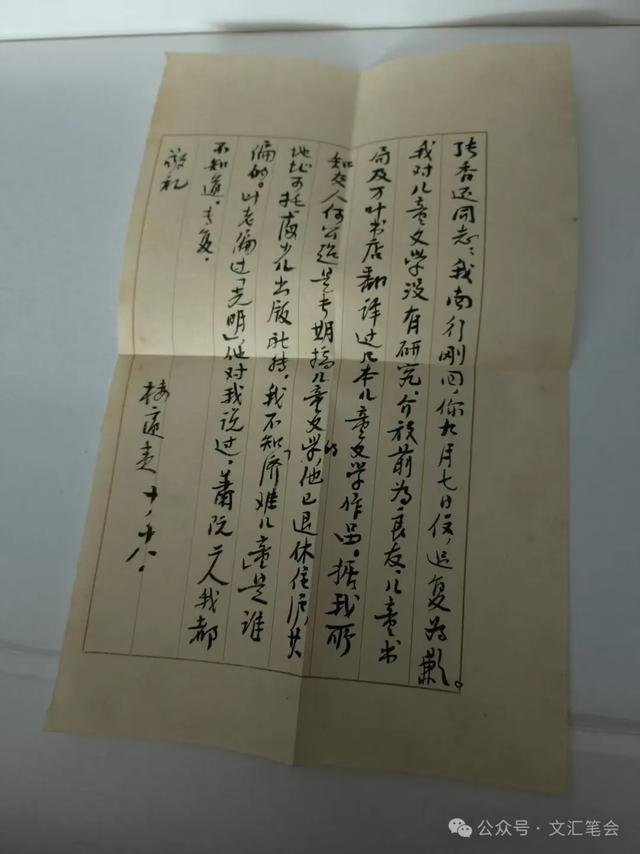 张香还同志:我南行刚回,你九月七日信,迟复为歉。
我对儿童文学没有研究,介放前为良友、儿童书
局及万叶书店翻译过几本儿童文学作品。据我所
知友人何公超是长期搞儿童文学的,他已退休住沪,其
地址可托少儿出版社转。我不知「济难儿童」是谁
编的。叶老编过「光明」,他对我说过。萧阮二人我都
不知道。专复。
敬礼
楼适夷 十、十八.
公众号·文汇笔会